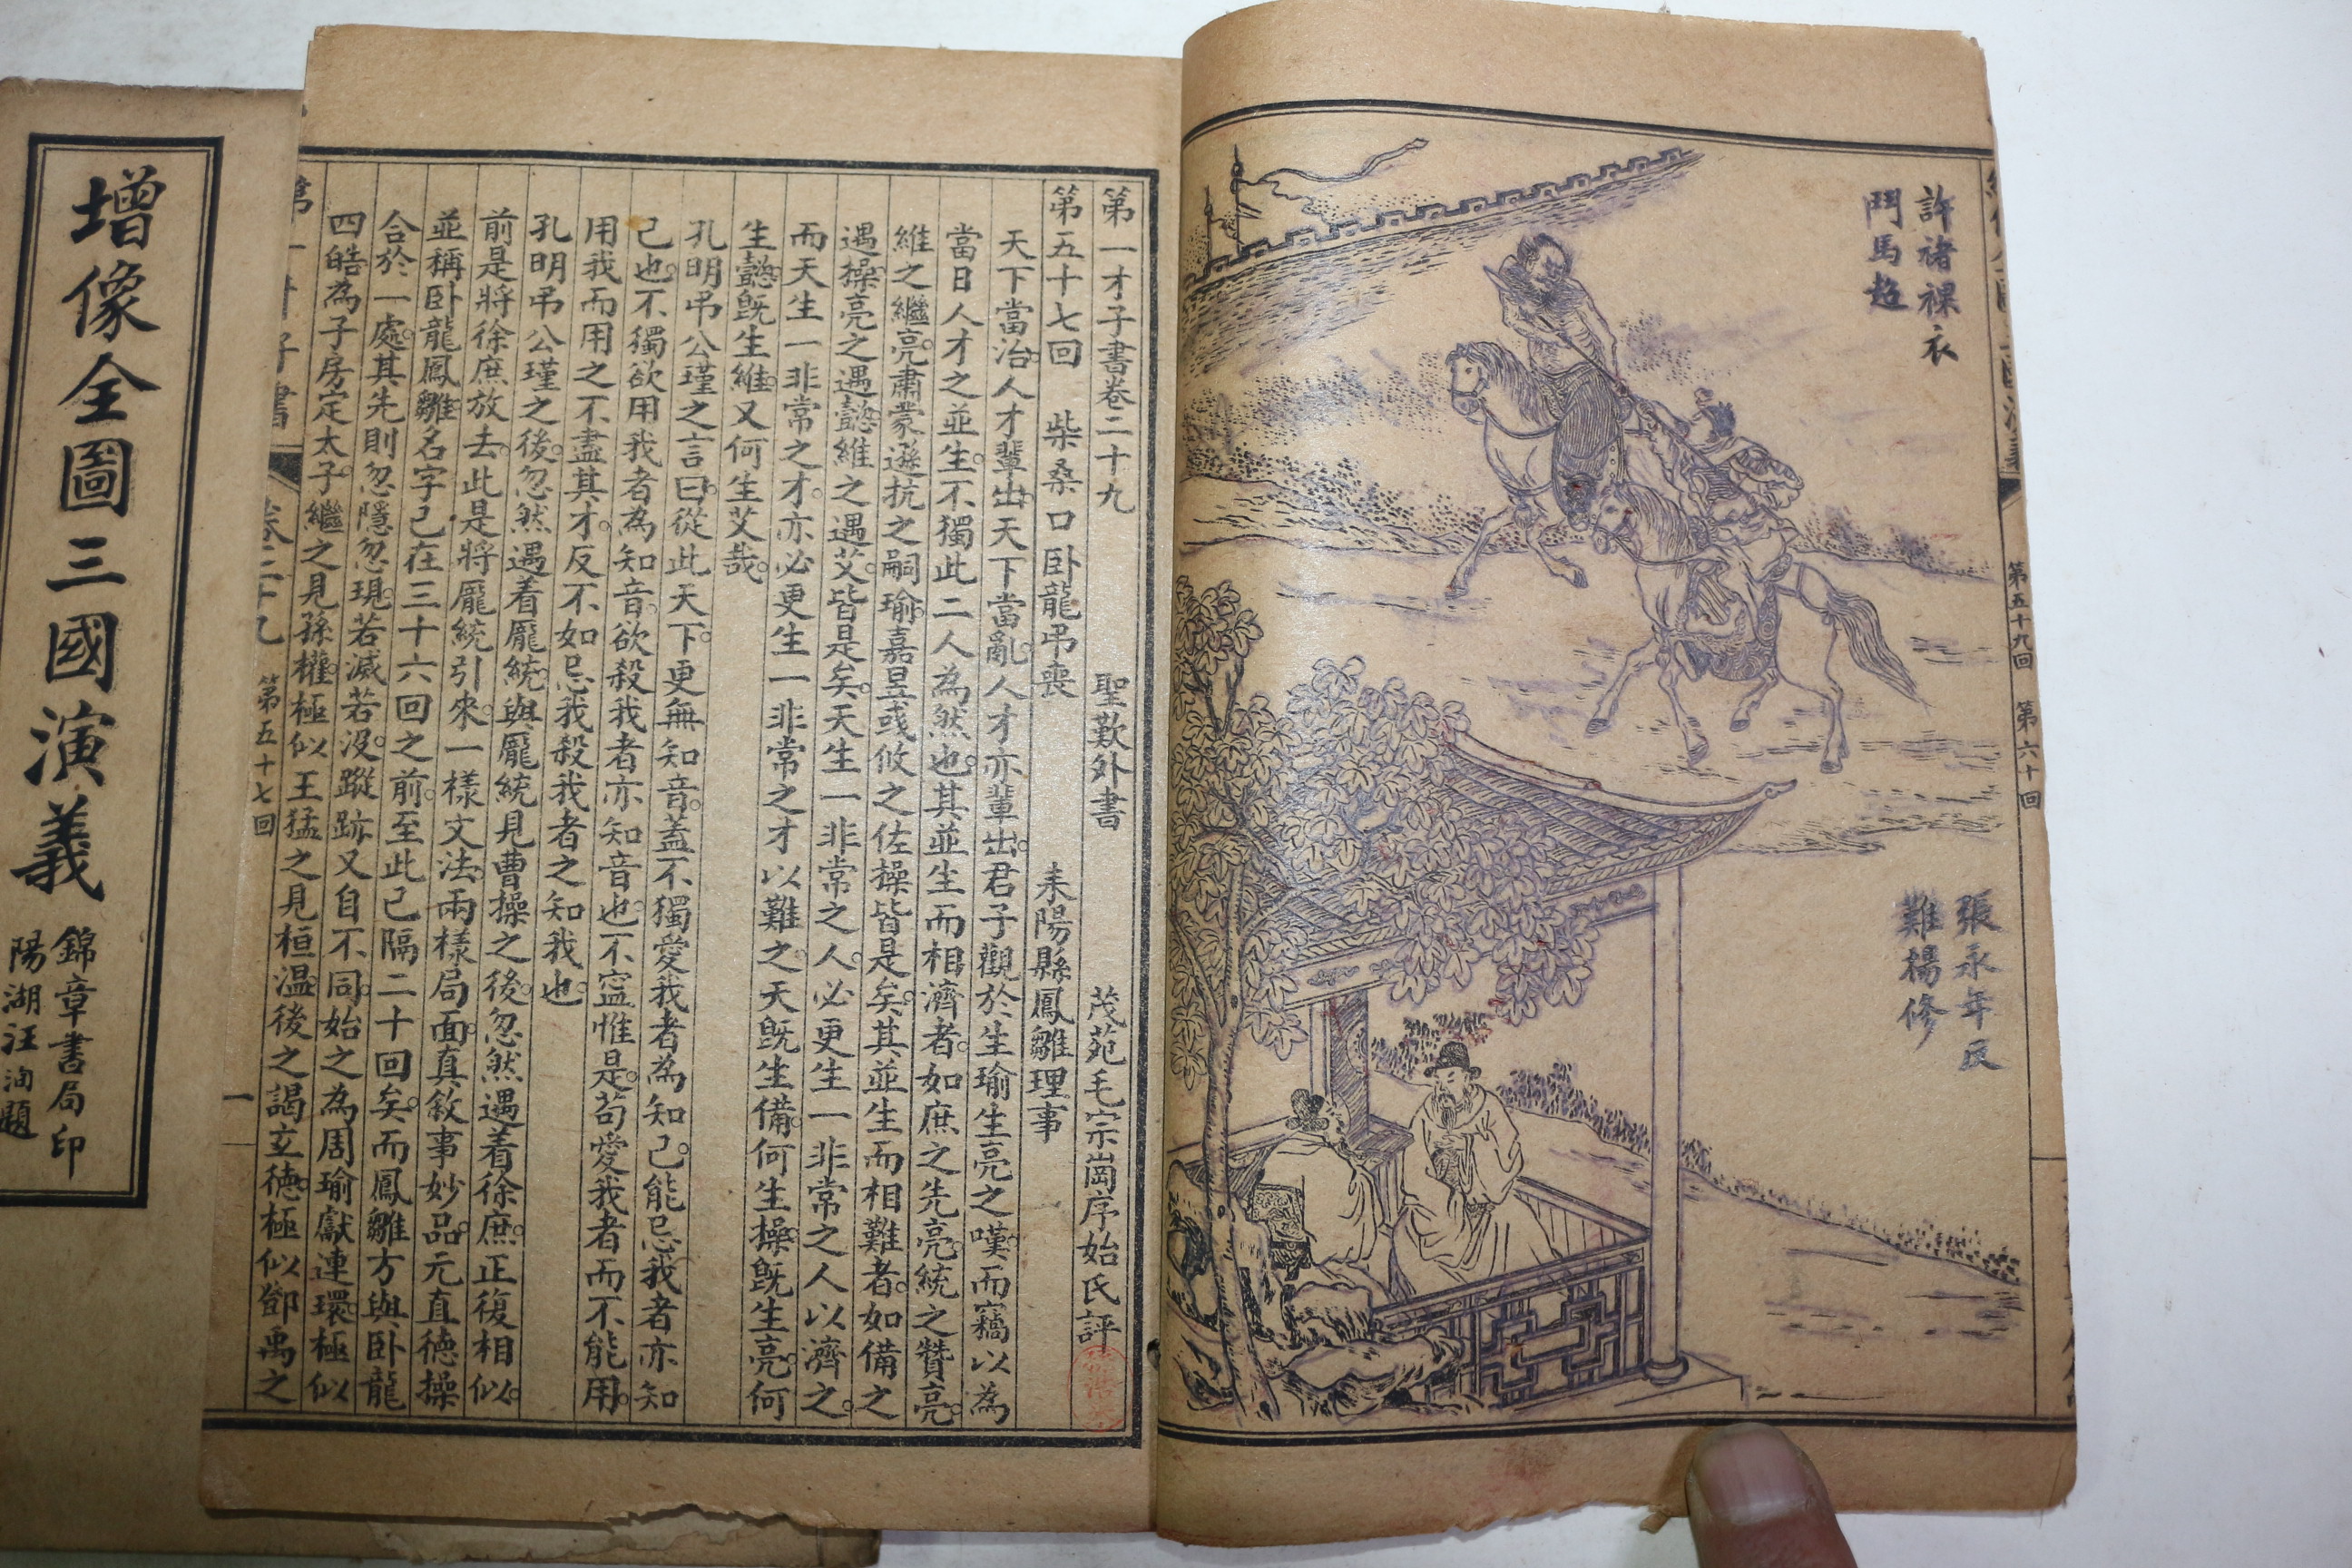 許褚裸衣
鬥馬超
張永年反
難楊修
第五十九回 第六十回
第一才子書卷二十九 聖歎外書 茂苑毛宗崗序始氏評
第五十七回 柴桑口卧龍弔喪 耒陽縣鳳雛理事
天下當治。人才輩出。天下當亂。人才亦輩出。君子觀於生瑜生亮之嘆。而竊以為
當日人才之並生。不獨此二人為然也。其並生而相濟者。如庶之先亮。統之贊亮。
維之繼亮。肅蒙遜抗之嗣瑜。嘉昱彧攸之佐操皆是矣。其並生而相難者。如備之
遇操。亮之遇懿。維之遇艾。皆是矣。天生一非常之人。必更生一非常之人以濟之。
而天生一非常之才。亦必更生一非常之才以難之。天既生備。何生操。既生亮。何
生懿。既生維。又何生艾哉。
孔明弔公瑾之言曰。從此天下。更無知音。蓋不獨愛我者為知己。能忌我者亦知
己也。不獨欲用我者為知音。欲殺我者亦知音也。不寍惟是。苟愛我者而不能用。
用我而用之不盡其才。反不如忌我殺我者之知我也。
孔明弔公瑾之後。忽然遇着龐統。與龐統見曹操之後。忽然遇着徐庶。正復相似。
前是將徐庶放去。此是將龐統引來。一樣文法。兩樣局面。真敘事妙品。元直德操
並稱卧龍鳳雛名字已在三十六回之前。至此已隔二十回矣。而鳳雛方與卧龍
合於一處。其先則忽隱忽現。若滅若沒。蹤跡又自不同。始之為周瑜獻連環。極似
四皓為子房定太子。繼之見孫權。極似王猛之見桓温。後之謁立德。極似鄧禹之
第一才子書 卷二十九 第五十七回 一
增像全圖三國演義
錦章書局印
陽湖汪洵題